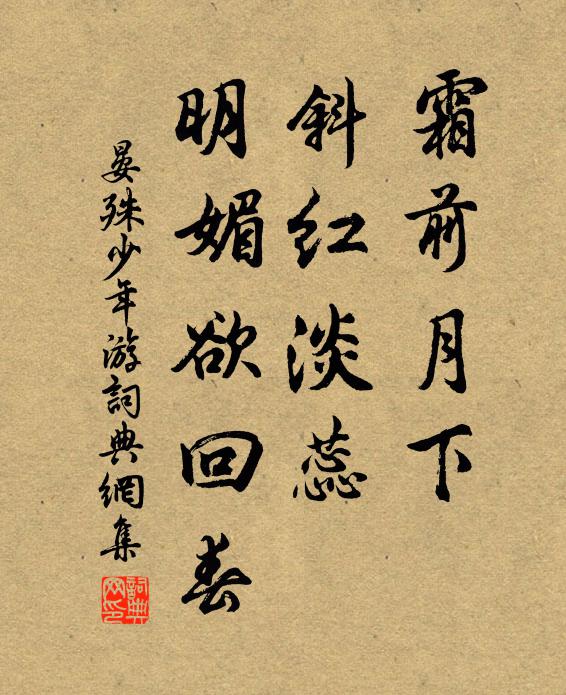 霜前月下
斜红淡蕊
明媚欲回春
晏殊少年游詞典網集
詞典网印